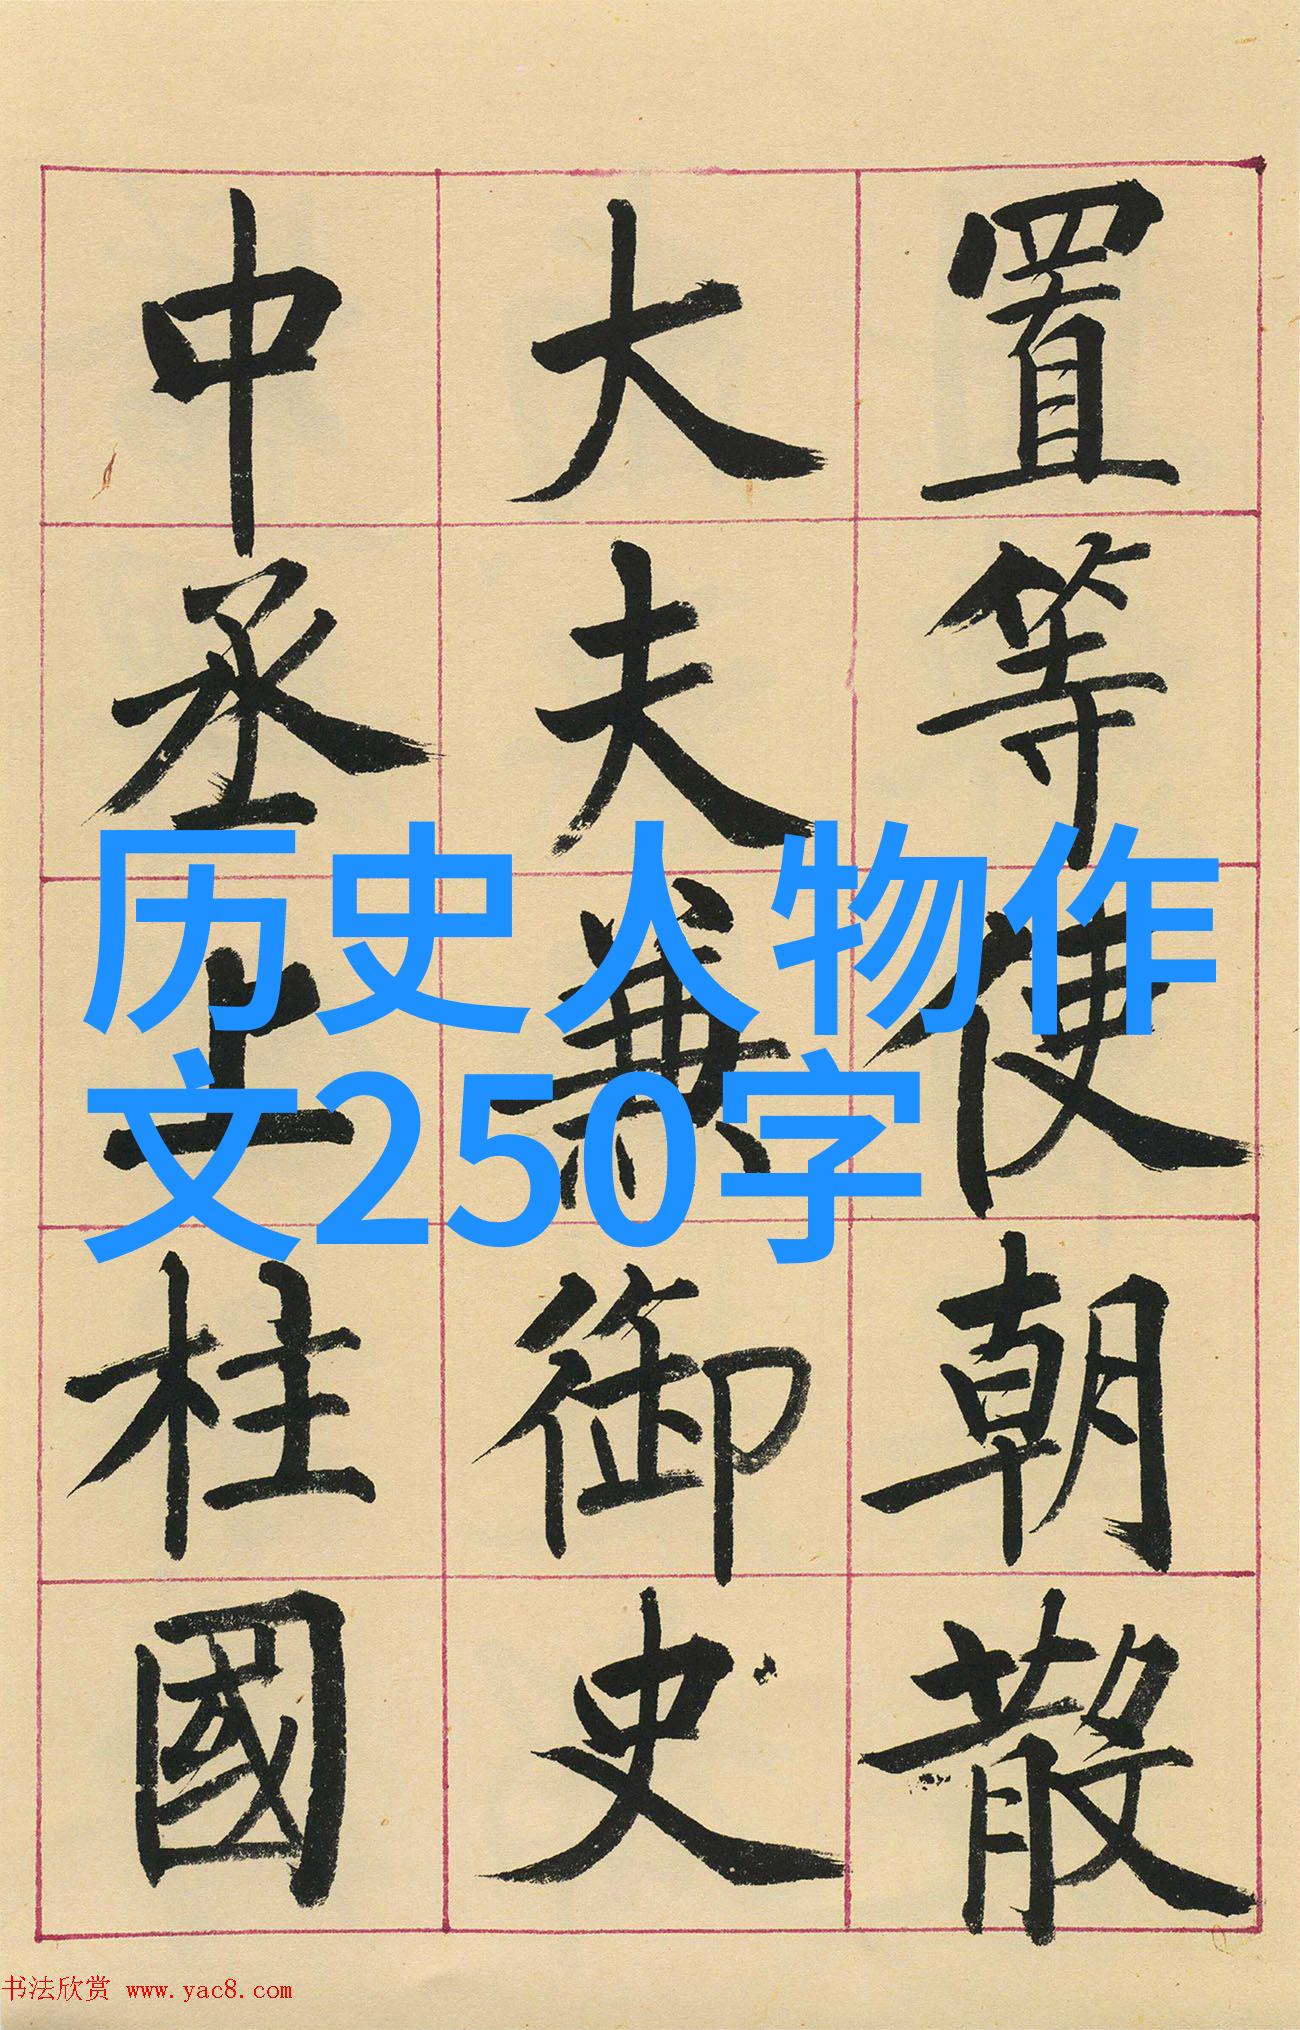 置等使朝散
大夫兼御史
中丞上柱國
历史人物作
文250字
书法欣赏 www.yac8.com